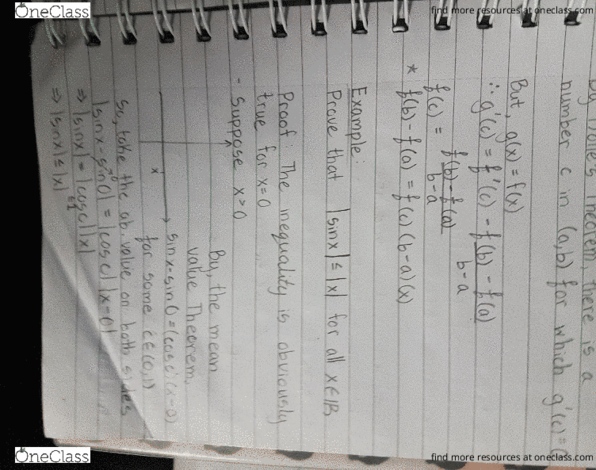 OneClass
find more resources at oneclass.com
by Rolle's Theorem, there is a
number c in (a,b) for which g'(c)=
But, g(x) = f(x)
∴ g'(c) = f'(c) - f(b) - f(a)
b-a
f(c) = f(b) - f(a)
b-a
* f(b) - f(a) = f(c) (b-a)(x)
Example:
Prove that |sinx| ≤ |x| for all x∈IR
Proof: The inequality is obviously
true for x=0
- Suppose x>0
By the mean
value Theorem,
sinx-sin0 = (cosc)(x-0)
for some c∈(0,
x
So, take the ab. value on both sides
|sinx-sin0| = |cosc| |x-0|
⇒ |sinx| = |cosc||x|
⇒ |sinx| ≤ |x|
OneClass
find more resources at oneclass.com